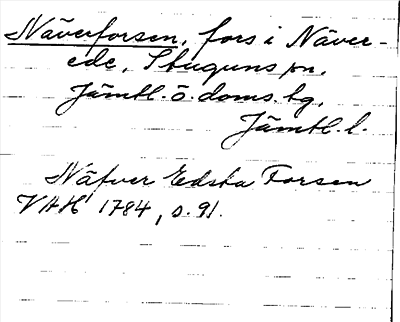 Näverforsen, fors i Näver-
ede, Stuguns sn,
Jämtl. ö. doms. hg,
Jämtl. l.
Näfver Edska Forsen
VAH 1784, s. 91.